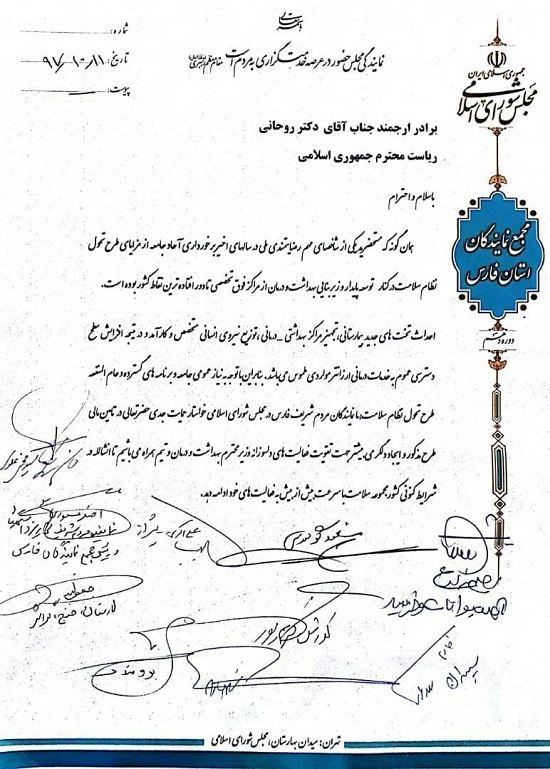 بسمه تعالی
نمایندگی مجلس حضور در عرصه خدمتگزاری به مردم است
شماره:
تاریخ: ۹۷/۱۰/۱۱
پیوست:
جمهوری اسلامی ایران
مجلس شورای اسلامی
مجمع نمایندگان
استان فارس
دوره دهم
برادر ارجمند جناب آقای دکتر روحانی
ریاست محترم جمهوری اسلامی
باسلام و احترام
همان گونه که مستحضرید یکی از شاخصهای مهم رضایتمندی ملی در سالهای اخیر برخورداری آحاد جامعه از مزایای طرح تحول
نظام سلامت در کنار توسعه پایدار و زیربنایی بهداشت و درمان از مراکز فوق تخصصی تا دور افتاده ترین نقاط کشور بوده است.
احداث تخت های جدید بیمارستانی، تجهیز مراکز بهداشتی _درمانی، توزیع نیروی انسانی متخصص و کارآمد و در نتیجه افزایش سطح
دسترسی عموم به خدمات درمانی ارزانتر مواردی ملموس می باشد. بنابراین با توجه به نیاز عمومی جامعه و برنامه های گسترده و عام المنفعه
طرح تحول نظام سلامت، ما نمایندگان مردم شریف فارس در مجلس شورای اسلامی خواستار حمایت جدی حضرتعالی در تامین مالی
طرح مذکور و ایجاد دلگرمی بیشتر جهت تقویت فعالیت های دلسوزانه وزیر محترم بهداشت و درمان و تیم همراه می باشیم تا انشالله در
شرایط کنونی کشور مجموعه سلامت با سرعت بیش از پیش به فعالیت های خود ادامه دهد.
علی اکبری شیراز
مسعود گودرزی
و رئیس مجمع نمایندگان فارس
تهران: میدان بهارستان، مجلس شورای اسلامی